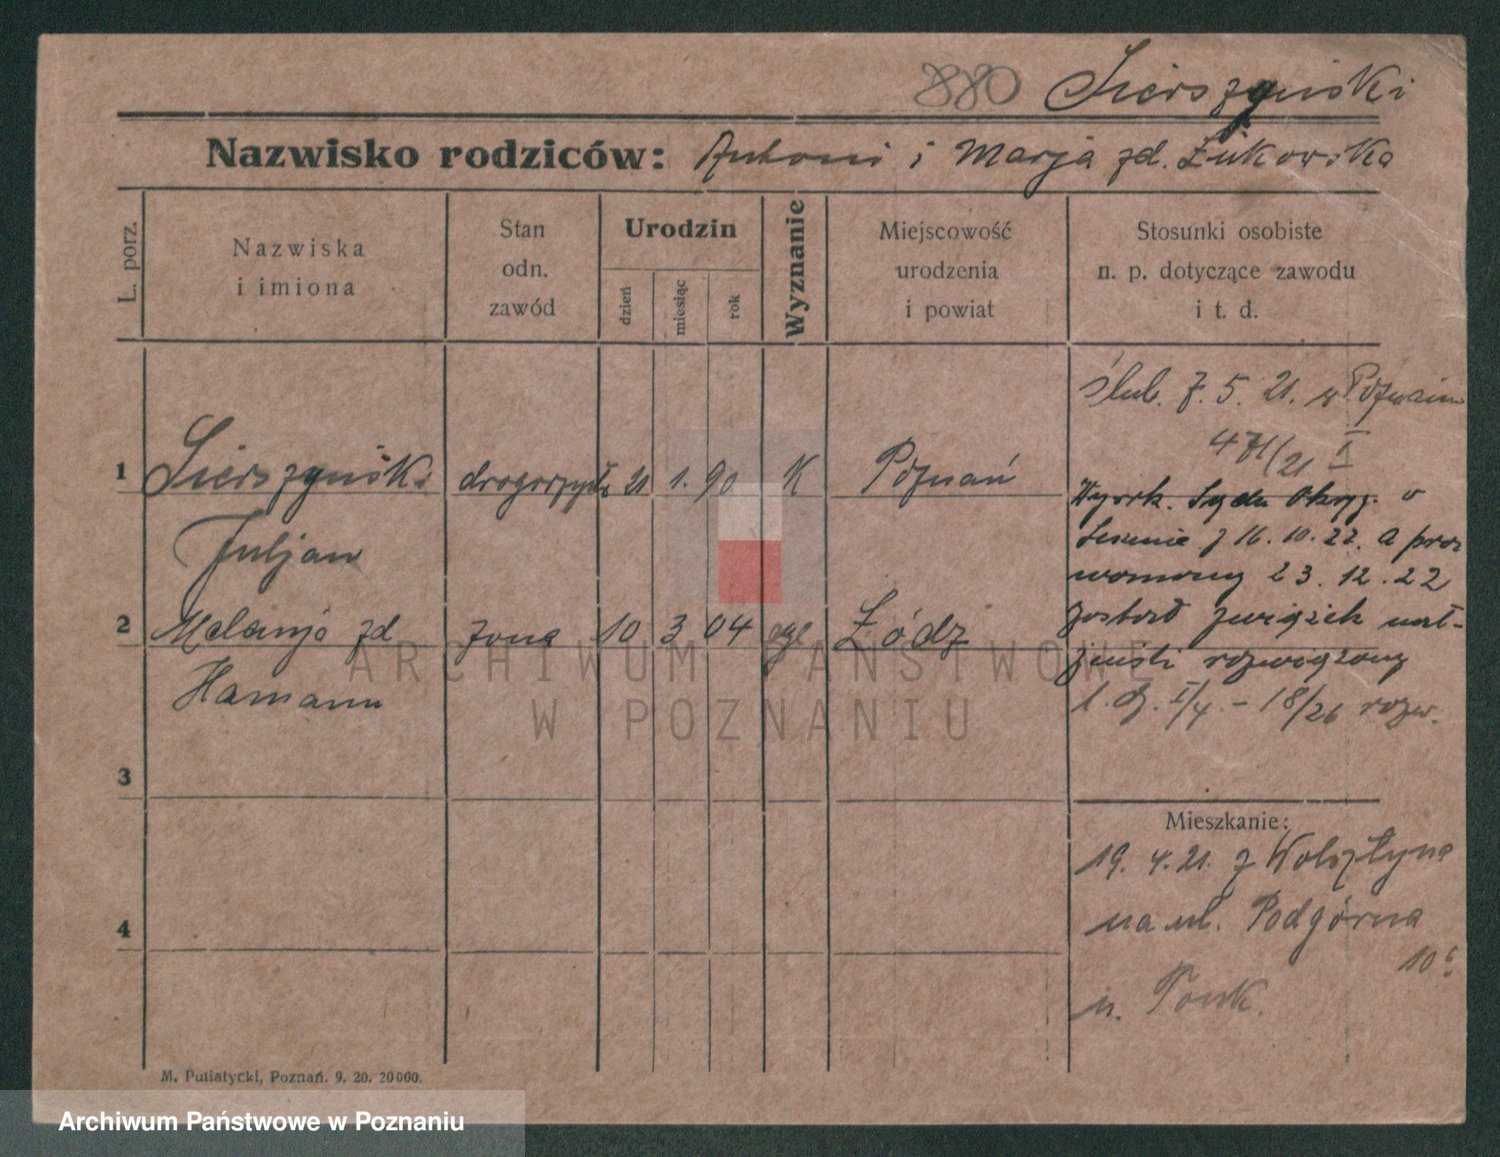 880 Sierszyński
Nazwisko rodziców: Antoni i Marja zd. Żukowska
L. porz.
Nazwiska
i imiona
Stan
odn.
zawód
Urodzin
dzień
miesiąc
rok
Wyznanie
Miejscowość
urodzenia
i powiat
Stosunki osobiste
n. p. dotyczące zawodu
i t. d.
ślub. 7. 5. 21. w Poznaniu
471/21 I
1 Sierszyński drogerzysta 21 1. 90 K Poznań
Juljan
Wyrok. Sądu Okręg. w
z 16. 10. 22. a praw
womocny 23. 12. 22
został związek mał-
żeński rozwiązany
l. dz. I/4. - 18/26 rozw.
2 Melanja zd żona 10 3 04 egl Łódz
Hamann
3
4
Mieszkanie:
19. 4. 21. z Wolsztyna
na ul. Podgórna
10
u. Ponk.
M. Putiatycki, Poznań. 9. 20. 20000.
ARCHIWUM PAŃSTWOWE
W POZNANIU
Archiwum Państwowe w Poznaniu